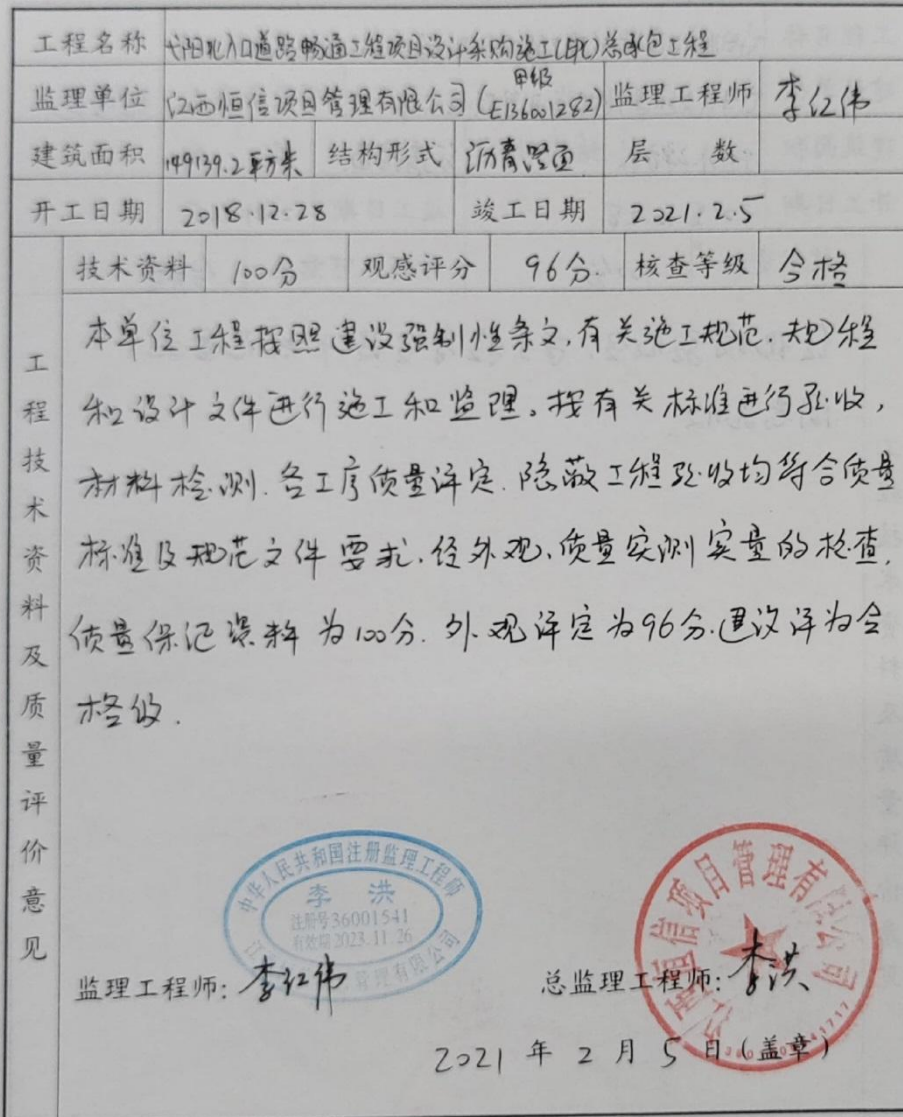 工程名称 弋阳北入口道路畅通工程项目设计采购施工(EPC)总承包工程
监理单位 江西恒信项目管理有限公司(甲级 E136001282) 监理工程师 李红伟
建筑面积 149139.2平方米 结构形式 沥青路面 层数
开工日期 2018.12.28 竣工日期 2021.2.5
技术资料 100分 观感评分 96分. 核查等级 合格
工程技术资料及质量评价意见
本单位工程按照建设强制性条文,有关施工规范.规程
和设计文件进行施工和监理。按有关标准进行验收,
材料检测.各工序质量评定.隐蔽工程验收均符合质量
标准及规范文件要求.经外观,质量实测实量的检查,
质量保记资料为100分.外观评定为96分.建议评为合
格级.
中华人民共和国注册监理工程师
李洪
注册号36001541
有效期2023.11.26
管理有限公司
江西恒信项目管理有限公司
监理工程师:李红伟 总监理工程师:李洪
2021年2月5日(盖章)